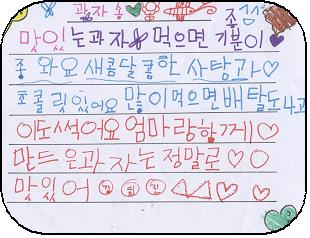 과자송
맛있는과자 먹으면 기분이♥
와요 새콤달콤한 사탕과♡
초콜릿있어요 많이먹으면배탈도나고
이도썩어요 엄마랑함께♡
만드은과자는 정말로♡○
맛있어